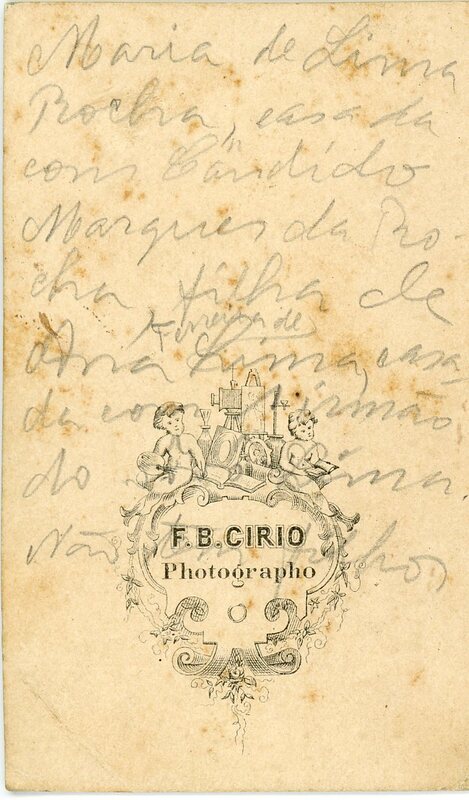 Maria de Lima
Rocha, casada
com Cândido
Marques da Ro-
cha filha de
Ferreira de
Ana Lima, casa-
da com irmão
do Lima.
Não filhos
F. B. CIRIO
Photographo